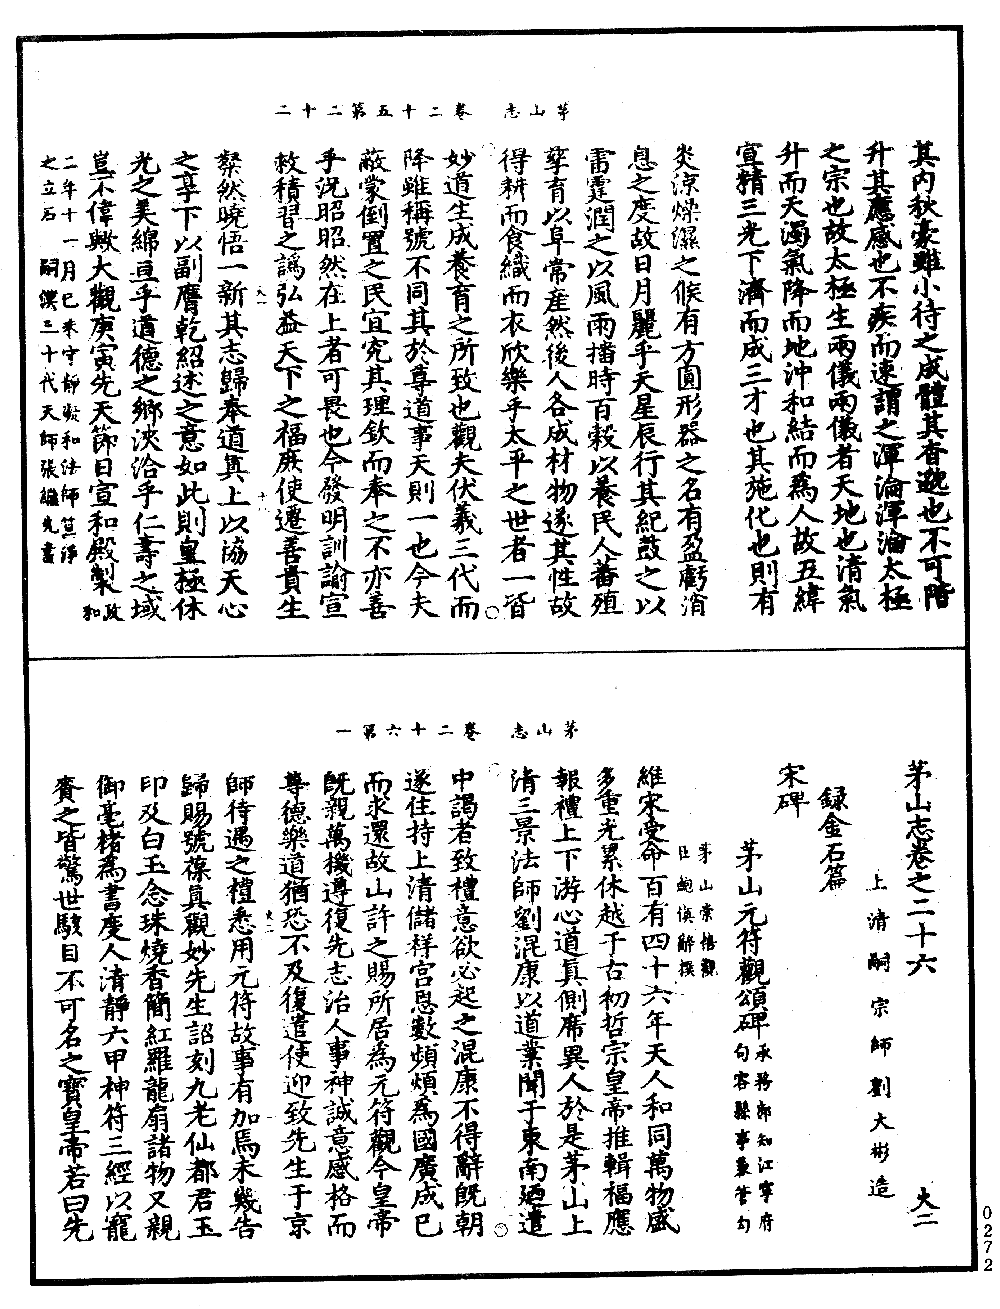 茅山志　卷二十五第二十二
其內秋毫雖小待之成體其杳邈也不可階
升其應感也不疾而速謂之渾淪渾淪太極
之宗也故太極生兩儀兩儀者天地也清氣
升而天濁氣降而地沖和結而為人故五緯
宣精三光下濟而成三才也其施化也則有
炎涼燥濕之候有方圓形器之名有盈虧消
息之度故日月麗乎天星辰行其紀鼓之以
雷霆潤之以風雨播時百穀以養民人蕃殖
孳育以阜常產然後人各成材物遂其性故
得耕而食織而衣欣樂乎太平之世者一皆
妙道生成養育之所致也觀夫伏羲三代而
降雖稱號不同其於尊道事天則一也今夫
蔽蒙倒置之民宜究其理欽而奉之不亦善
乎況昭昭然在上者可畏也今發明訓諭宣
救積習之譌弘益天下之福庶使遷善貴生
粲然曉悟一新其志歸奉道真上以協天心
之享下以副膺乾紹述之意如此則皇極休
光之美綿亘乎道德之鄉浹洽乎仁壽之域
豈不偉歟大觀庚寅先天節日宣和殿製政和
二年十一月已未守靜凝和法師笪淨
之立石　嗣漢三十代天師張繼先書
茅山志　卷二十六第一
茅山志卷之二十六　大二
上清嗣宗師劉大彬造
錄金石篇
宋碑
茅山元符觀頌碑承務郎知江寧府句容縣事兼管勾
茅山崇禧觀
臣鮑慎辭撰
維宋受命百有四十六年天人和同萬物盛
多重光累休越于古初哲宗皇帝推輯福應
報禮上下游心道真側席異人於是茅山上
清三景法師劉混康以道業聞于東南廼遣
中謁者致禮意欲必起之混康不得辭既朝
遂住持上清儲祥宮恩數頻煩為國廣成已
而求還故山許之賜所居為元符觀今皇帝
既親萬機遵復先志治人事神誠意感格而
尊德樂道猶恐不及復遣使迎致先生于京
師待遇之禮悉用元符故事有加焉未幾告
歸賜號葆真觀妙先生詔刻九老仙都君玉
印及白玉念珠燒香簡紅羅龍扇諸物又親
御毫楮為書度人清靜六甲神符三經以寵
賚之皆驚世駭目不可名之寶皇帝若曰先
0272